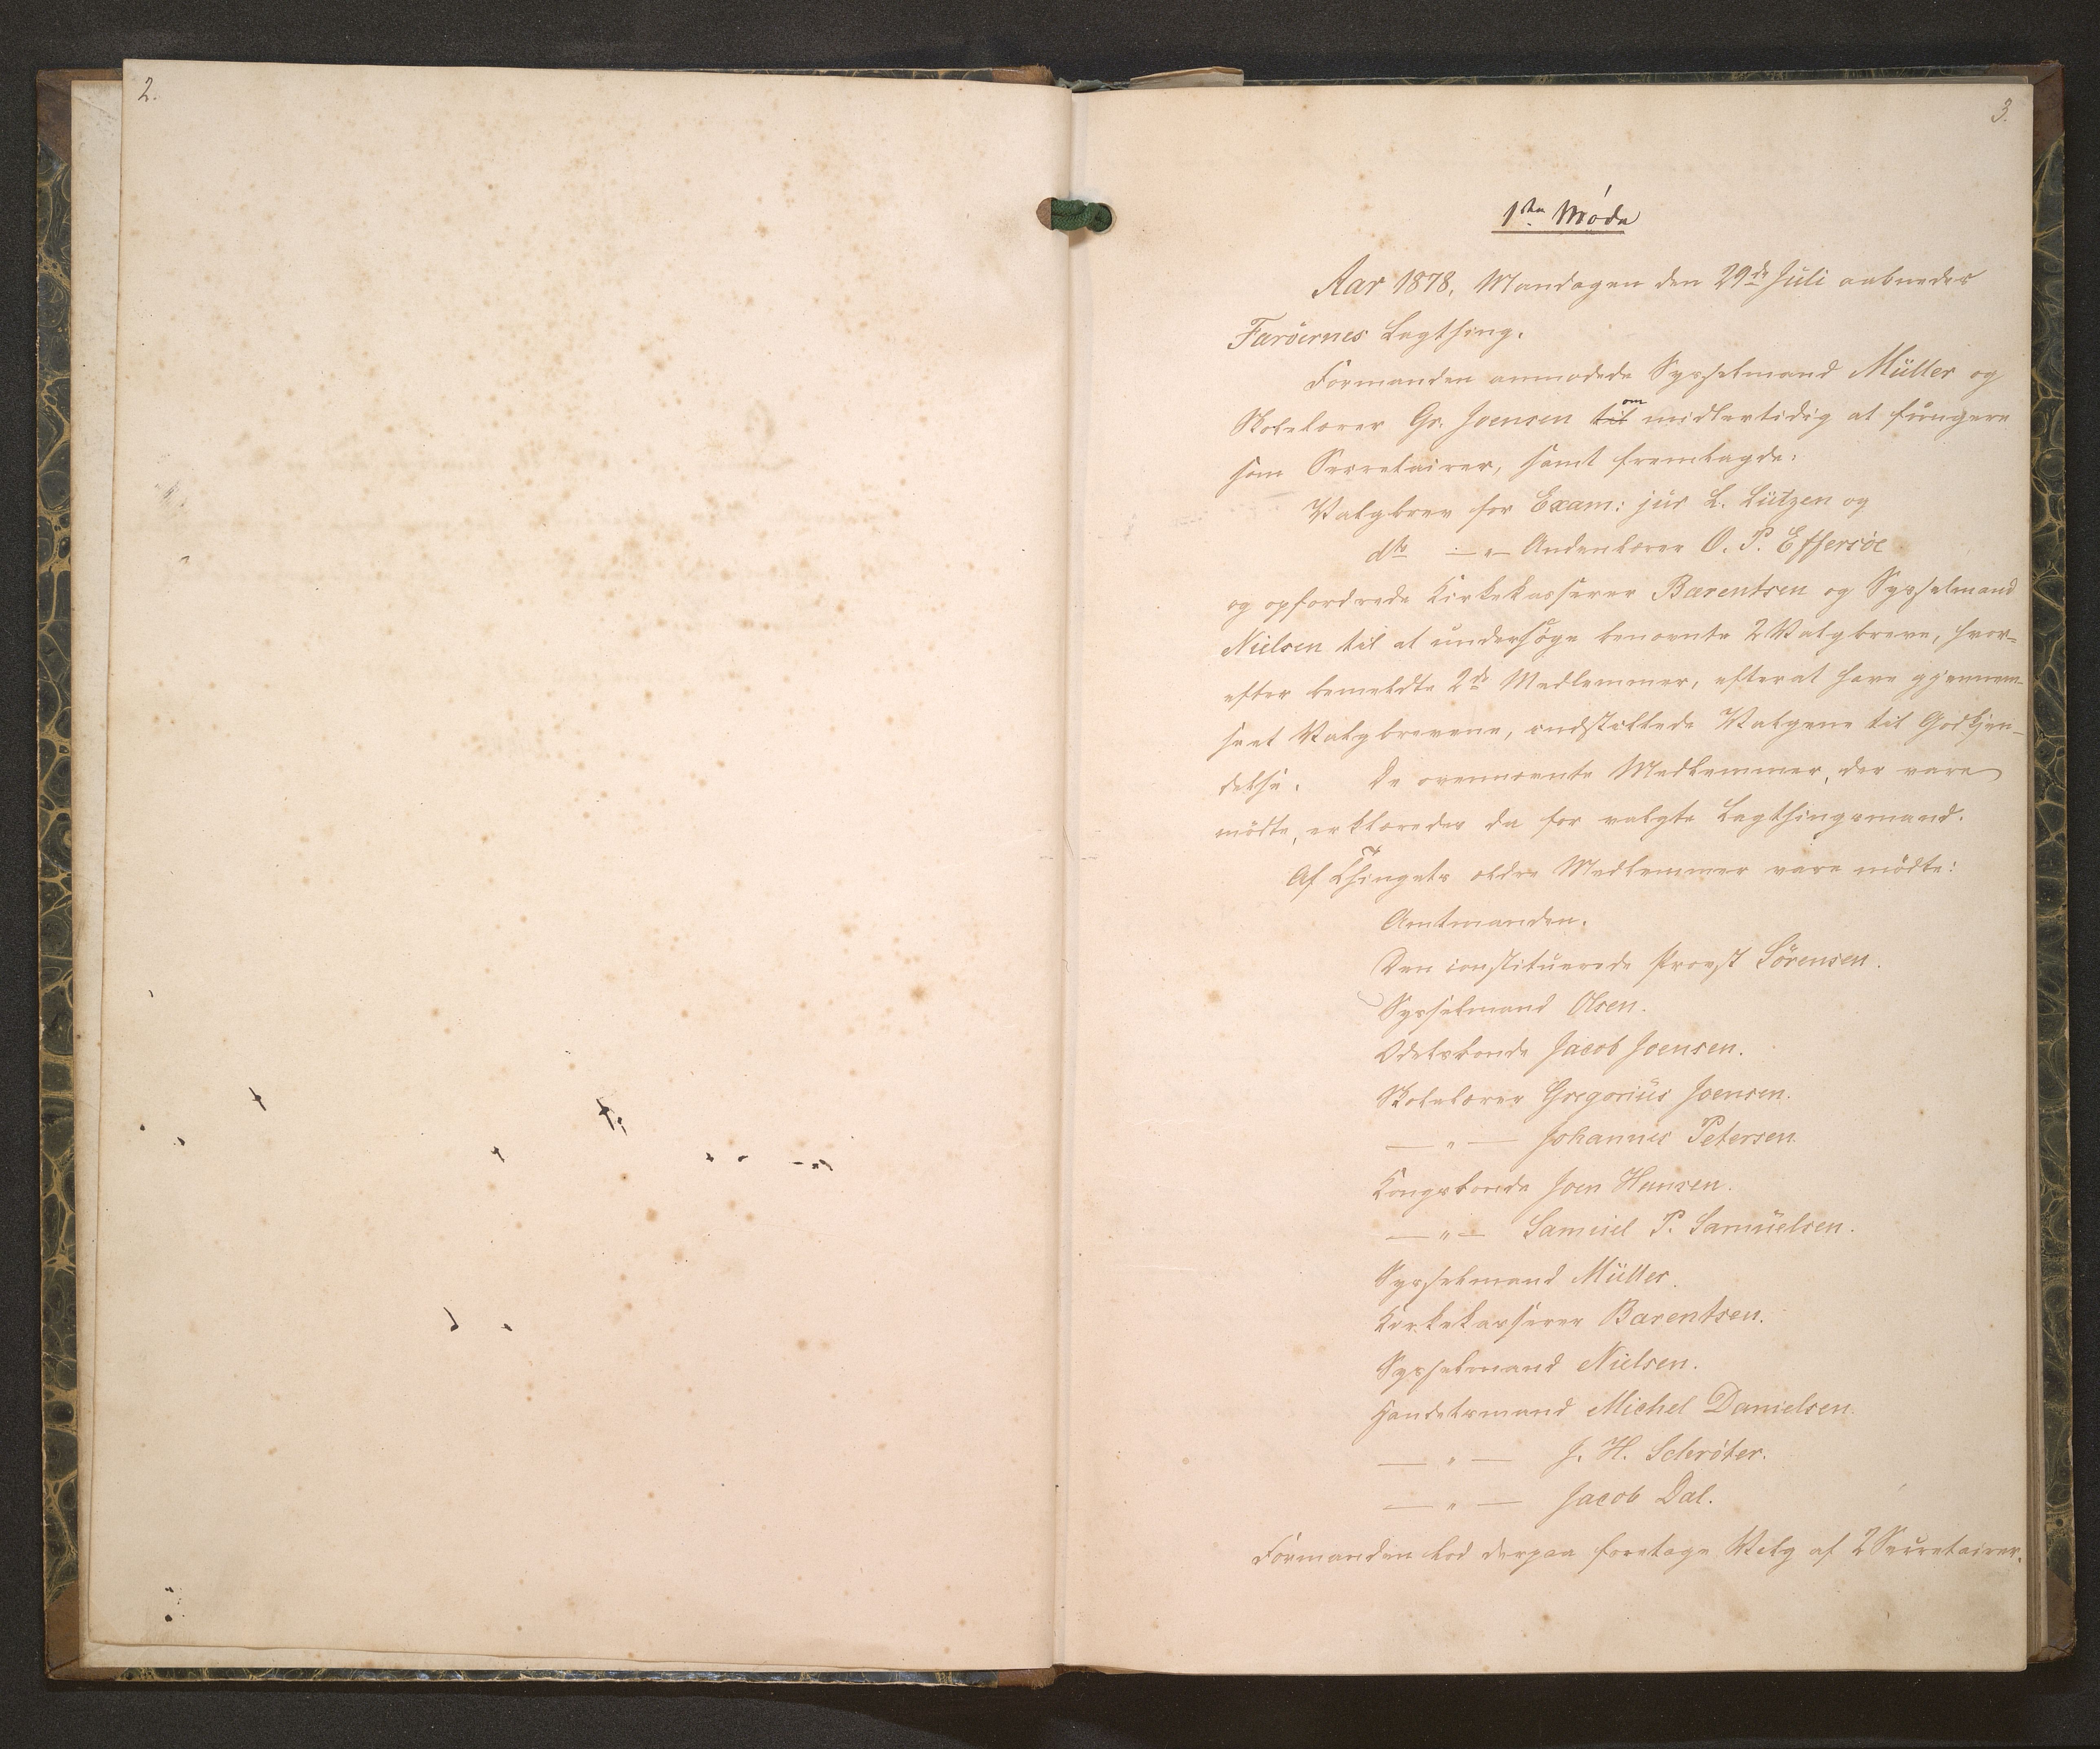 2.
3.
1ste Møde
Aar 1878, Mandagen den 29de Juli aabnedes
Færöernes Lagthing.
Formanden anmodede Sysselmand Müller og
Skolelærer Gr. Joensen til om midlertidig at fungere
som Secretairer, samt fremlagde:
Valgbrev for Exam: jur L. Lützen og
dto — „ — Andenlærer O. P. Effersöe
og opfordrede Kirkekasserer Bærentsen og Sysselmand
Nielsen til at undersöge benævnte 2 Valgbreve, hvor-
efter bemeldte 2de Medlemmer, efterat have gjennem-
seet Valgbrevene, indstillede Valgene til Godkjen-
delse. De ovennævnte Medlemmer, der vare
mödte, erklæredes da for valgte Lagthingsmænd.
Af Thingets ældre Medlemmer vare mödte:
Amtmanden.
Den constituerede Provst Sörensen.
Sysselmand Olsen.
Odelsbonde Jacob Joensen.
Skolelærer Gregorius Joensen.
— „ — Johannes Petersen.
Kongsbonde Joen Hansen.
— „ — Samuel P. Samuelsen.
Sysselmand Müller.
Kirkekasserer Bærentsen.
Sysselmand Nielsen.
Handelsmand Michel Danielsen.
— „ — J. H. Schröter.
— „ — Jacob Dal.
Formanden lod derpaa foretage Valg af 2 Secretairer.